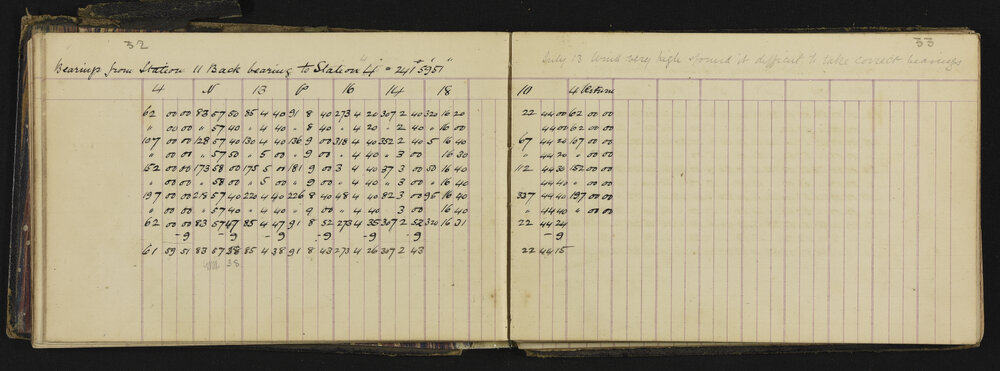 32
33
Bearings from Station 11 Back bearing to Station "4" = 241° 59' 51"
July 13 Wind very high found it difficult to take correct bearings
4 N 13 P 16 14 18 10 4 Return
62 00 00 83 57 50 85 4 40 91 8 40 273 4 20 307 2 40 320 16 20 22 44 00 62 00 00
" 00 00 " 57 40 " 4 40 " 8 40 " 4 20 " 2 40 " 16 00 44 00 62 00 00
107 00 00 128 57 40 130 4 40 136 9 00 318 4 40 352 2 40 5 16 40 67 44 20 107 00 00
" 00 00 " 57 50 " 5 00 " 9 00 " 4 40 " 3 00 16 30 " 44 20 " 00 00
152 00 00 173 58 00 175 5 00 181 9 00 3 4 40 37 3 00 50 16 40 112 44 30 152 00 00
" 00 00 " 58 00 " 5 00 " 9 00 " 4 40 " 3 00 " 16 40 44 40 " 00 00
197 00 00 218 57 40 220 4 40 226 8 40 48 4 40 82 3 00 95 16 40 337 44 40 197 00 00
" 00 00 " 57 40 " 4 40 " 9 00 " 4 40 3 00 16 40 " 44 40 " 00 00
62 00 00 83 57 47 85 4 47 91 8 52 273 4 35 307 2 52 320 16 31 22 44 24
-9 -9 -9 -9 -9 -9 -9
61 59 51 83 57 38 85 4 38 91 8 43 273 4 26 307 2 43 22 44 15
38